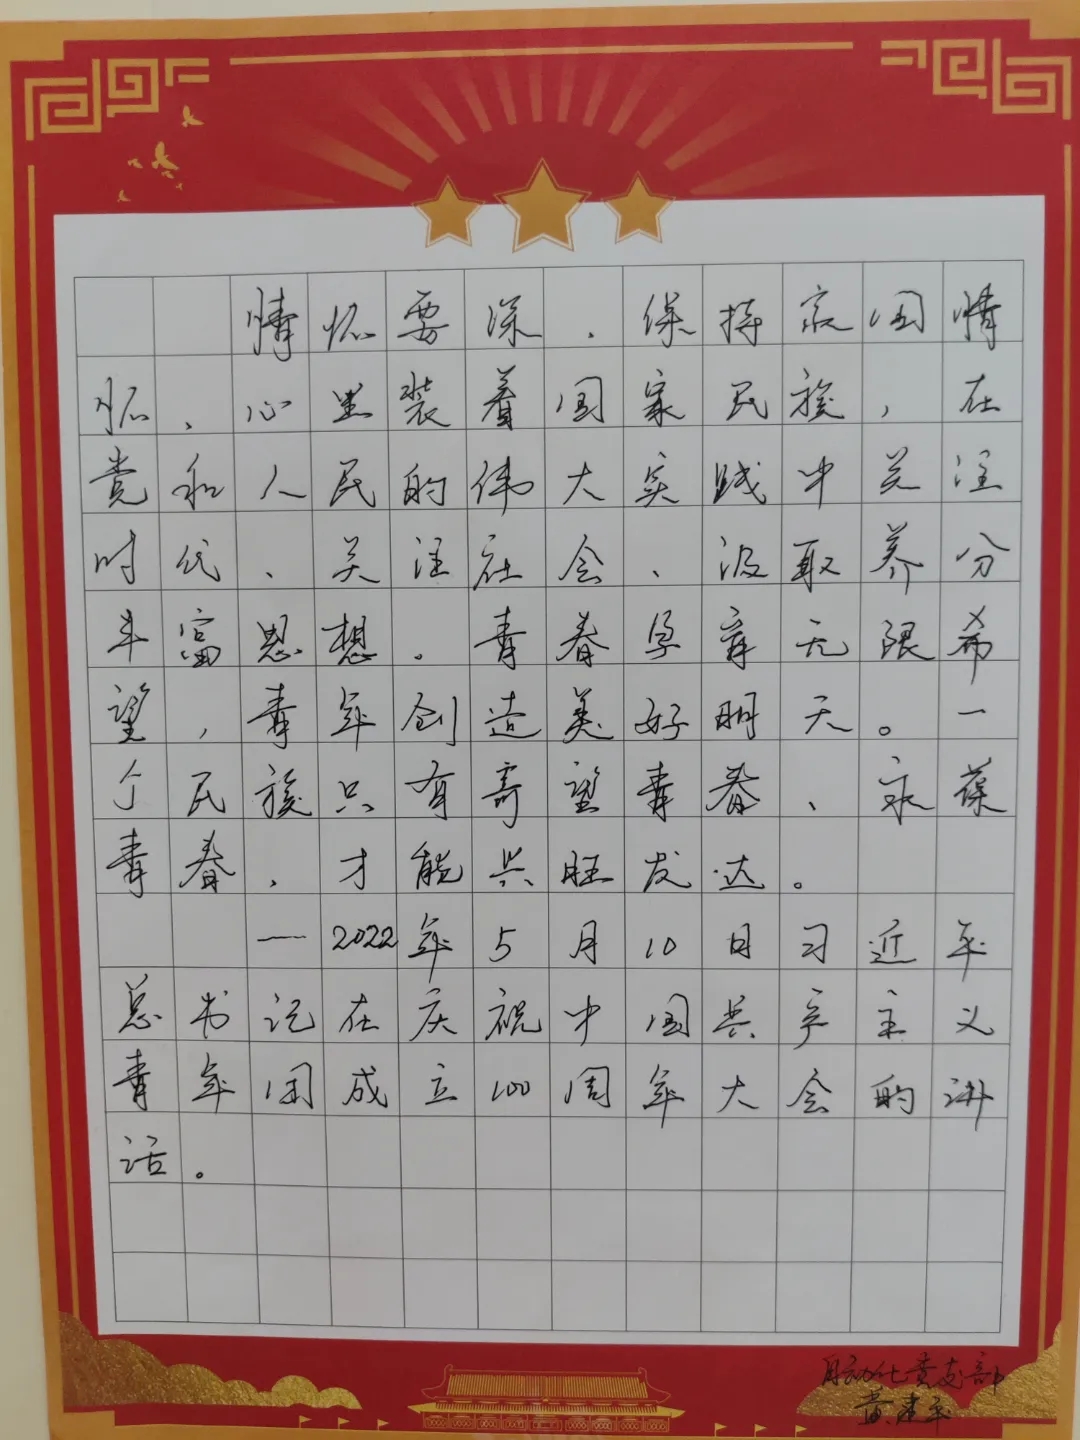 情怀要深，保持家国情
怀，心里装着国家民族，在
党和人民的伟大实践中关注
时代、关注社会、汲取养分
丰富思想。青春孕育无限希
望，青年创造美好明天。一
个民族只有寄望青春、永葆
青春，才能兴旺发达。
—2022年5月10日习近平
总书记在庆祝中国共产主义
青年团成立100周年大会的讲
话。
自动化党支部
黄建平